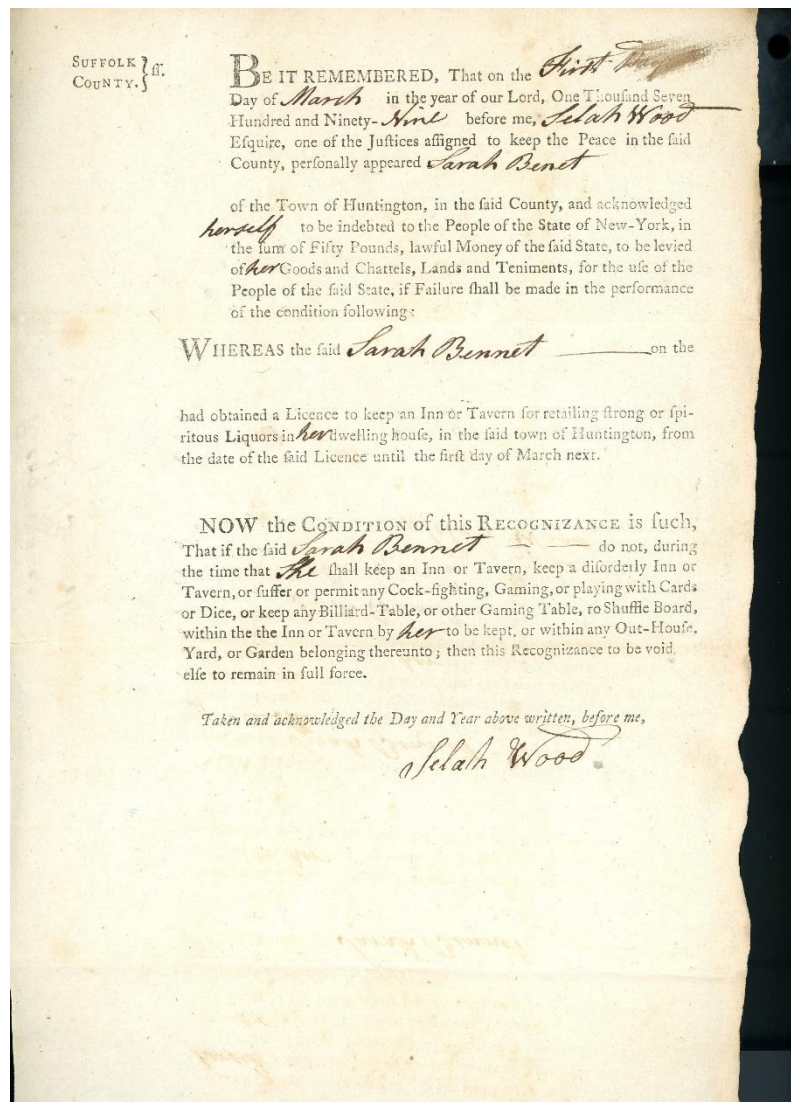 SUFFOLK
COUNTY. } ſſ.
BE IT REMEMBERED, That on the First Day
Day of March in the year of our Lord, One Thouſand Seven
Hundred and Ninety-Nine before me, Selah Wood
Eſquire, one of the Juſtices aſſigned to keep the Peace in the ſaid
County, perſonally appeared Sarah Benet
of the Town of Huntington, in the ſaid County, and acknowledged
herself to be indebted to the People of the State of New-York, in
the ſum of Fifty Pounds, lawful Money of the ſaid State, to be levied
of her Goods and Chattels, Lands and Teniments, for the uſe of the
People of the ſaid State, if Failure ſhall be made in the performance
of the condition following:
WHEREAS the ſaid Sarah Bennet —— on the
had obtained a Licence to keep an Inn or Tavern for retailing ſtrong or ſpi-
ritous Liquors in her dwelling houſe, in the ſaid town of Huntington, from
the date of the ſaid Licence until the firſt day of March next.
NOW the CONDITION of this RECOGNIZANCE is ſuch,
That if the ſaid Sarah Bennet — — do not, during
the time that She ſhall keep an Inn or Tavern, keep a diſorderly Inn or
Tavern, or ſuffer or permit any Cock-fighting, Gaming, or playing with Cards
or Dice, or keep any Billiard-Table, or other Gaming Table, ro Shuffle Board,
within the the Inn or Tavern by her to be kept, or within any Out-Houſe,
Yard, or Garden belonging thereunto; then this Recognizance to be void
elſe to remain in full force.
Taken and acknowledged the Day and Year above written, before me,
Selah Wood